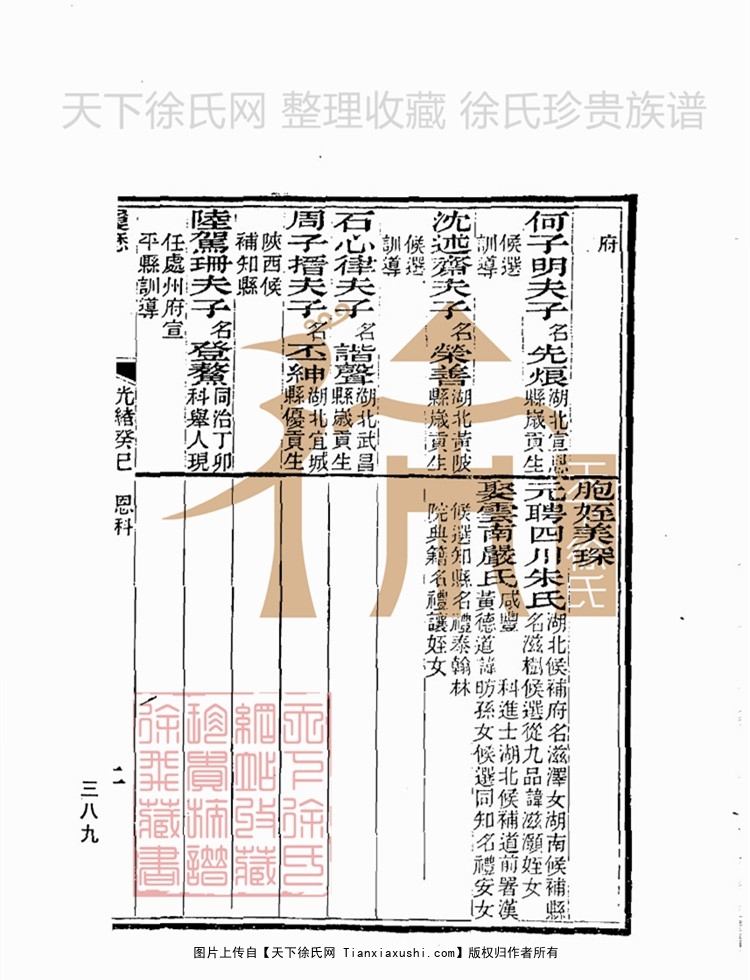 天下徐氏网 整理收藏 徐氏珍贵族谱
府
何子明夫子名先烺湖北宣恩縣歲貢生候選訓導
沈述齋夫子名榮善湖北黃陂縣歲貢生候選訓導
石心律夫子名諧聲湖北武昌縣歲貢生
周子搢夫子名丕紳湖北宜城縣優貢生陝西候補知縣
陸駕珊夫子名登鰲同治丁卯科舉人現任處州府宣平縣訓導
胞姪美琛
元聘四川朱氏湖北候補府名滋澤女湖南候補縣名滋樹候選從九品諱滋灝姪女
娶雲南嚴氏咸豐 科進士湖北候補道前署漢黃德道諱昉孫女候選同知名禮安女候選知縣名禮泰翰林院典籍名禮讓姪女
光緒癸巳 恩科
三八九
天下徐氏
天下徐氏網站收藏珍貴族譜徐氏藏書
图片上传自【天下徐氏网 Tianxiaxushi.com】版权归作者所有